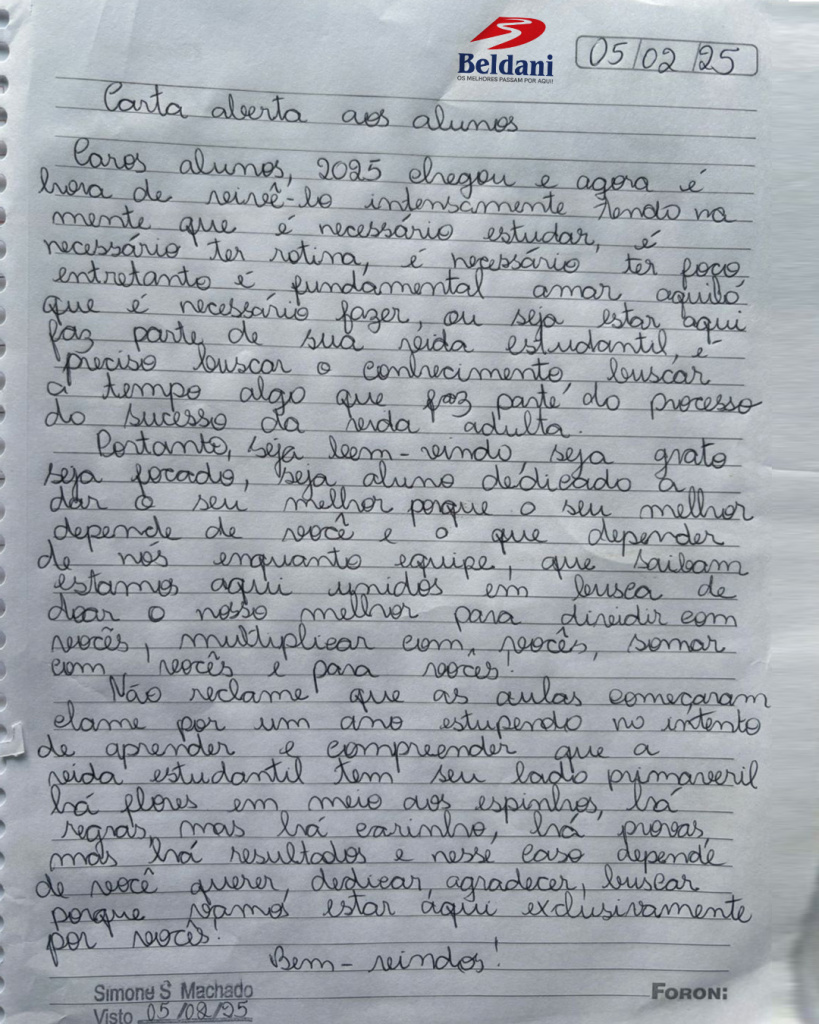 Beldani
OS MELHORES PASSAM POR AQUI
05/02/25
Carta aberta aos alunos
Caros alunos, 2025 chegou e agora é
hora de vivê-lo intensamente tendo na
mente que é necessário estudar, é
necessário ter rotina, é necessário ter foco
entretanto é fundamental amar aquilo
que é necessário fazer, ou seja estar aqui
faz parte de sua vida estudantil, é
preciso buscar o conhecimento, buscar
a tempo algo que faz parte do processo
do sucesso da vida adulta.
Portanto, seja bem-vindo, seja grato
seja focado, seja aluno dedicado a
dar o seu melhor porque o seu melhor
depende de você e o que depender
de nós enquanto equipe, que saibam
estamos aqui unidos em busca de
doar o nosso melhor para dividir com
vocês, multiplicar com vocês, somar
com vocês e para vocês!
Não reclame que as aulas começaram
clame por um ano estupendo no intento
de aprender e compreender que a
vida estudantil tem seu lado primaveril
há flores em meio aos espinhos, há
regras, mas há carinho, há provas,
mas há resultados e nesse caso depende
de você querer, dedicar, agradecer, buscar
porque vamos estar aqui exclusivamente
por vocês!
Bem-vindos!
Simone S Machado
Visto 05/02/25
FORONI